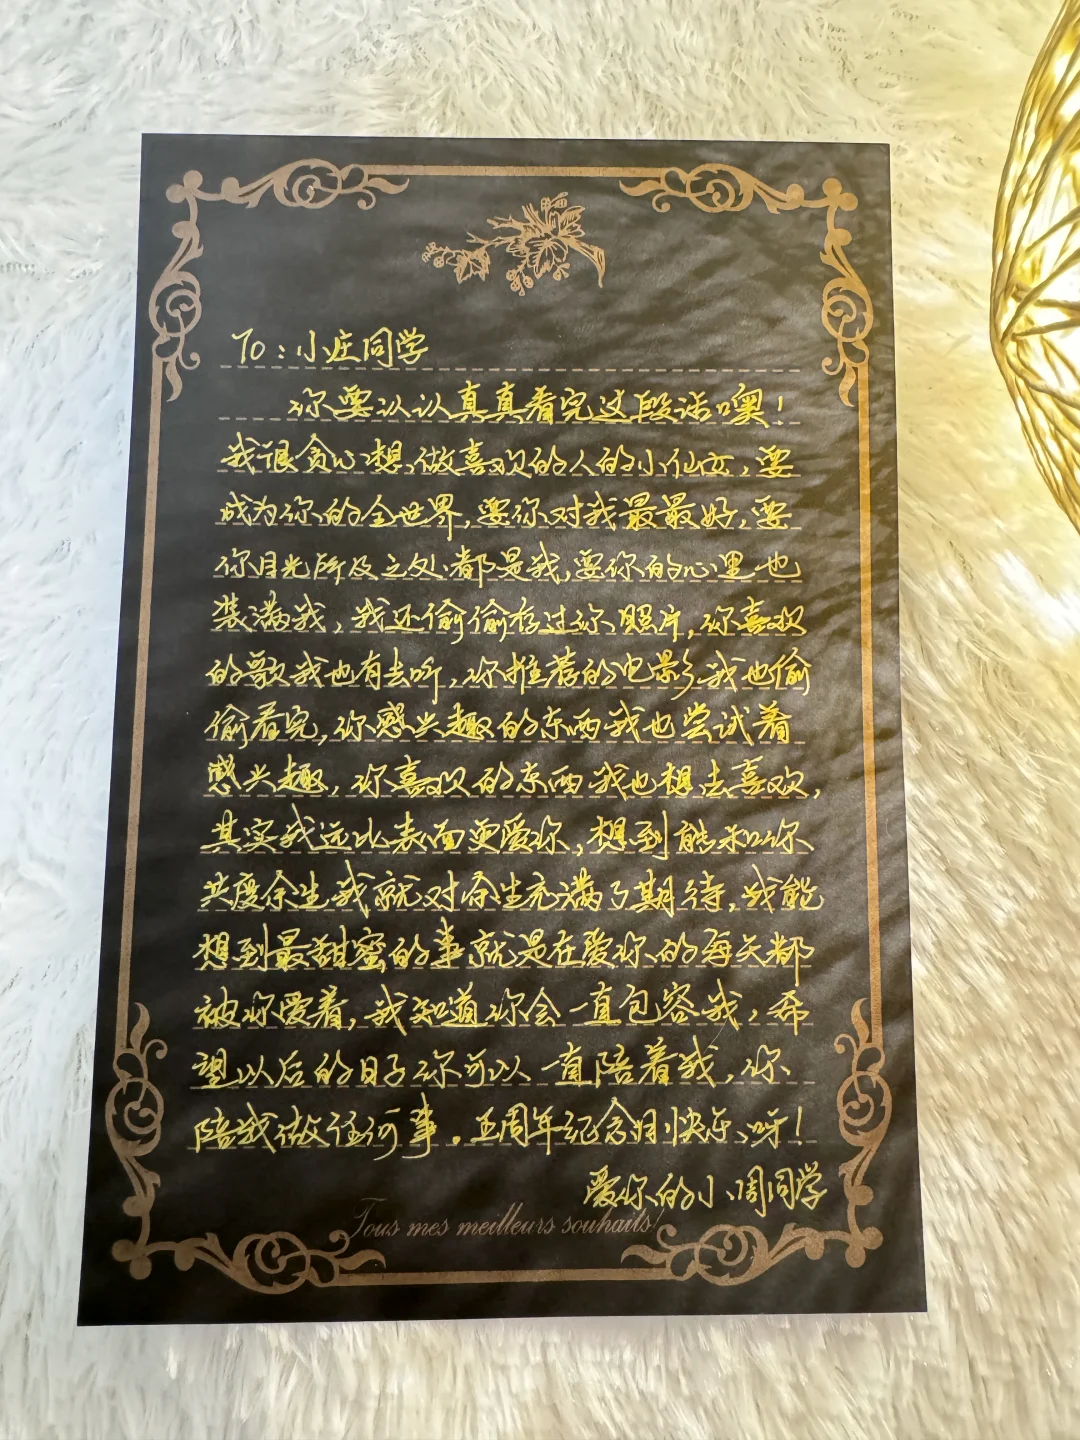 To：小庄同学
你要认认真真看完这段话噢！
我很贪心，想做喜欢的人的小仙女，要
成为你的全世界，要你对我最最好，要
你目光所及之处都是我，要你的心里也
装满我，我还偷偷存过你照片，你喜欢
的歌我也有去听，你推荐的电影我也偷
偷看完，你感兴趣的东西我也尝试着
感兴趣，你喜欢的东西我也想去喜欢，
其实我远比表面更爱你，想到能和你
共度余生我就对余生充满了期待，我能
想到最甜蜜的事就是在爱你的每天都
被你爱着，我知道你会一直包容我，希
望以后的日子你可以一直陪着我，你
陪我做任何事。五周年纪念日快乐呀！
爱你的小周同学
Tous mes meilleurs souhaits!